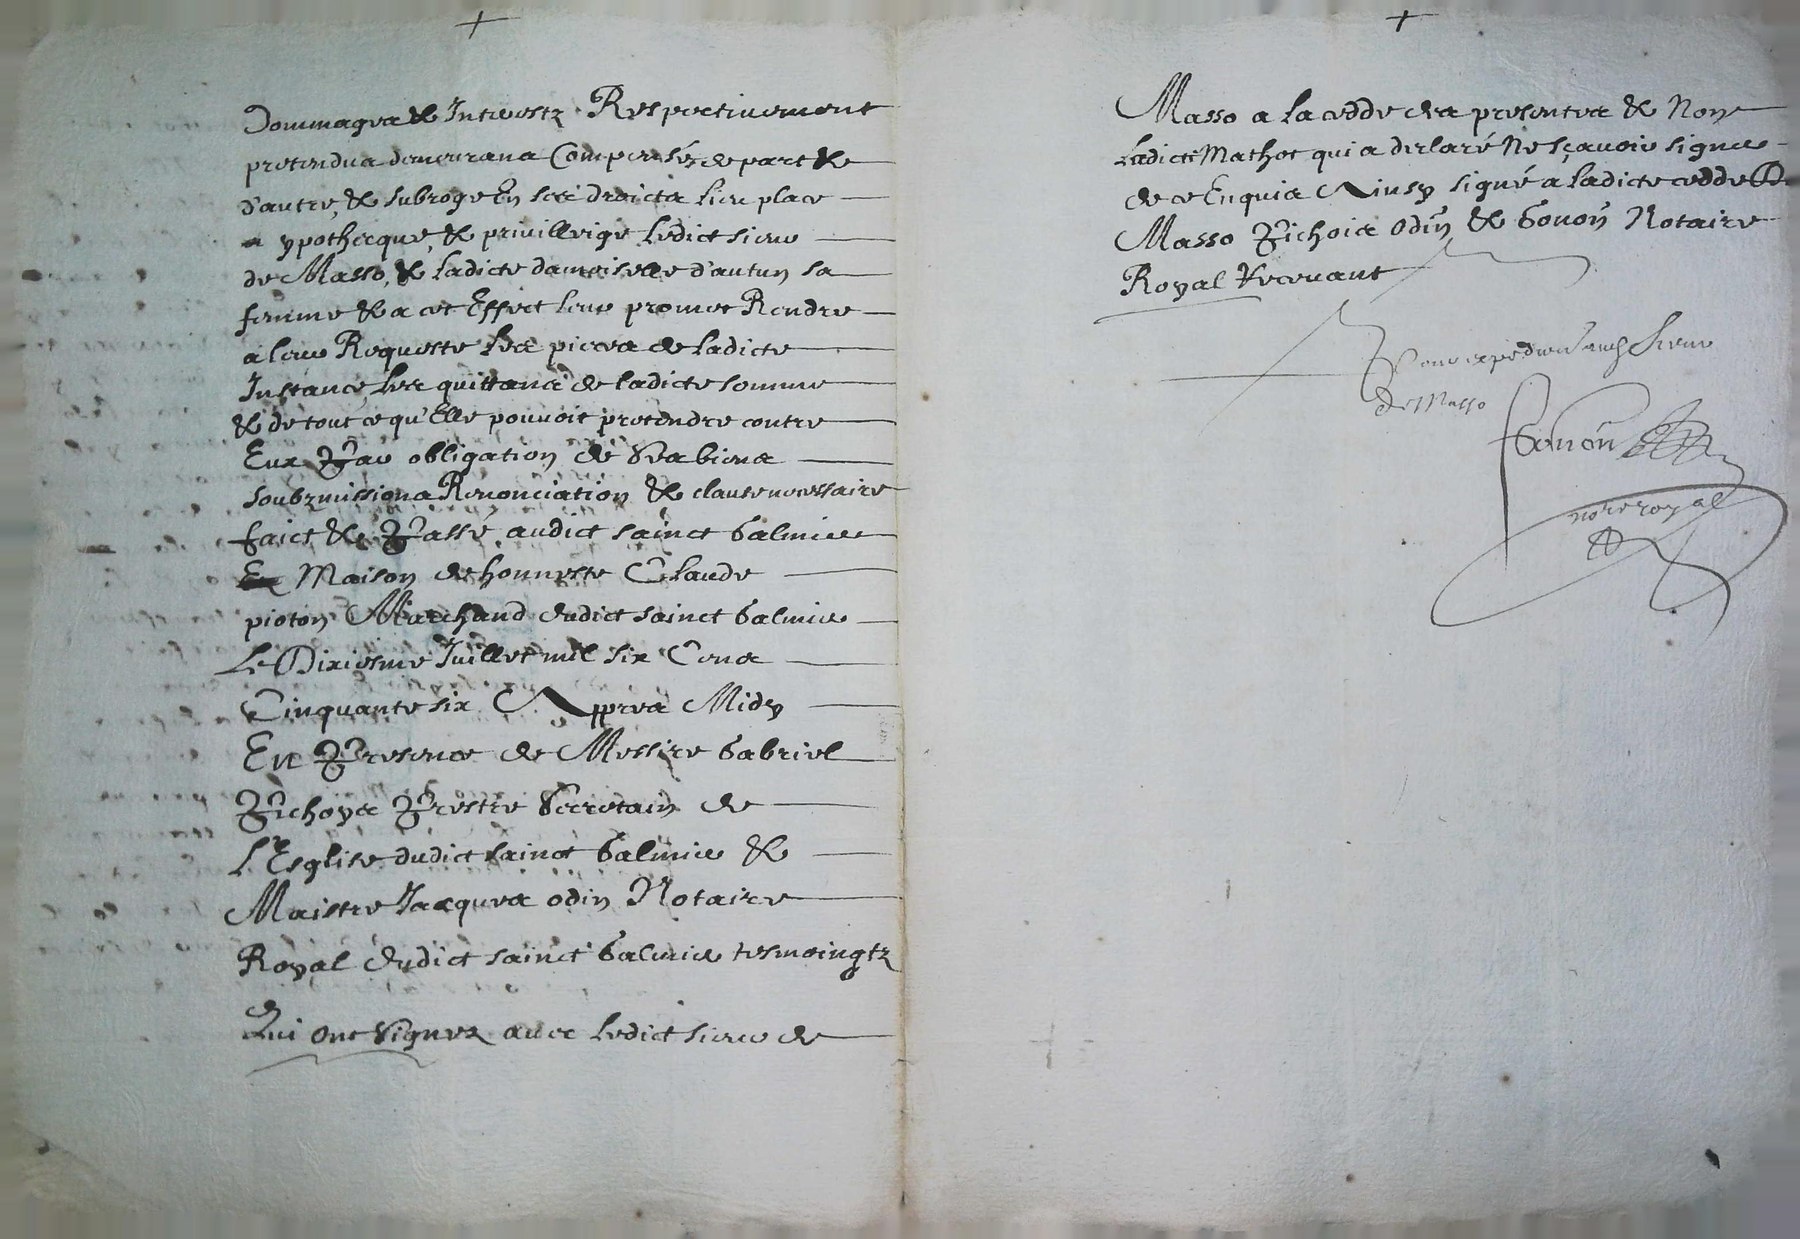 Dommages & Interestz Respectivement
pretendus demeurans Compensés de part &
d'autre, & subroge En ses droicts lieu place
ypothecque, & privilleige Ledict sieur
de Masso, & ladicte damoiselle d'autun sa
femme & a cet Effect leur promet Rendre
a leur Requeste les pieces de ladicte
Instance, les quittance de ladicte somme
& de tout ce qu'Elle pouvoit pretendre contre
Eux Par obligation de ses biens
soubzmissions Renonciation & clause necessaire
faict & Passé audict sainct Galmier
Maison de honneste Claude
pioton Marchand dudict sainct Galmier
Le Dixiesme Juillet mil six Cens
Cinquante six Appres Midy
En Presence de Messire Gabriel
Pichoys Prestre Secretain de
L'Esglise dudict sainct Galmier &
Maistre Jacques odin Notaire
Royal dudict sainct Galmier tesmoingtz
Qui ont signez avec Ledict sieur de
Masso a la cedde des presentes & Non
Ladicte Mathot qui a declaré Ne sçavoir signer
de ce Enquis Ainsy signé a ladicte cedde De
Masso Pichois Odin & Gonon Notaire
Royal Recevant
Pour expedié audict Sieur
de Masso
Gonon
no.re royal